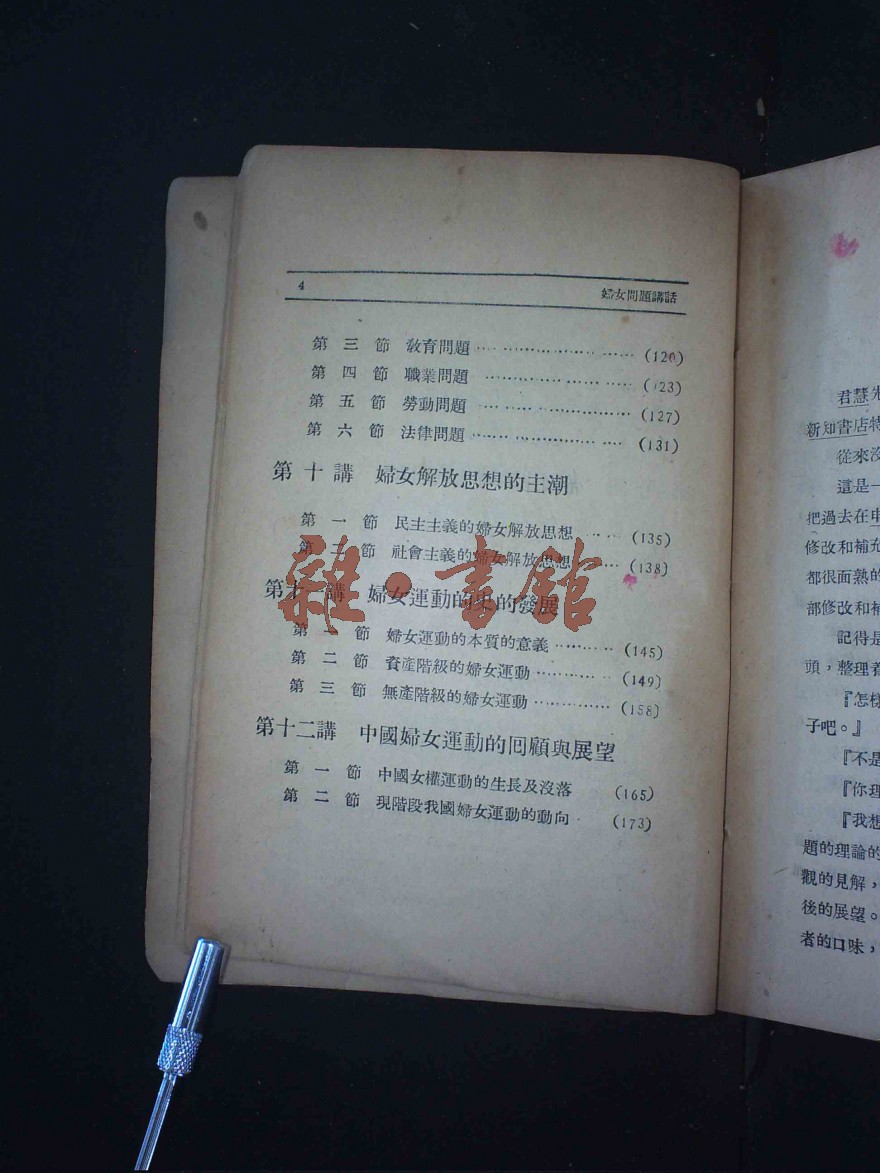 4 婦女問題講話
第三節 教育問題 (120)
第四節 職業問題 (123)
第五節 勞動問題 (127)
第六節 法律問題 (131)
第十講 婦女解放思想的主潮
第一節 民主主義的婦女解放思想 (135)
第二節 社會主義的婦女解放思想 (138)
第十一講 婦女運動的史的發展
第一節 婦女運動的本質的意義 (145)
第二節 資產階級的婦女運動 (149)
第三節 無產階級的婦女運動 (158)
第十二講 中國婦女運動的回顧與展望
第一節 中國女權運動的生長及沒落 (165)
第二節 現階段我國婦女運動的動向 (173)
雜·書館
君慧
新知書店特
從來沒
這是一
把過去在申
修改和補充
都很面熟的
部修改和補
記得是
頭，整理着
『怎樣
子吧。』
『不是
『你理
『我想
題的理論的
觀的見解，
後的展望。
者的口味，